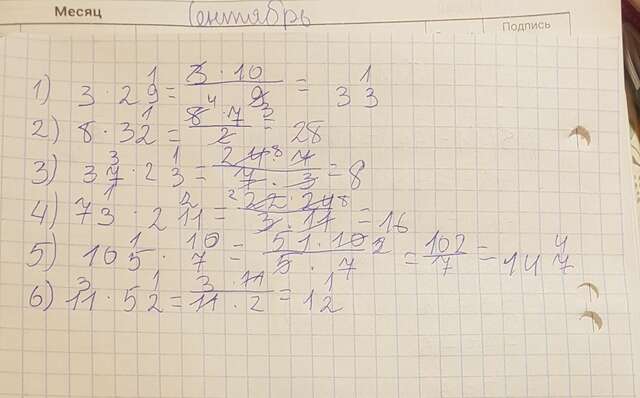 Месяц Сентябрь Подпись
1) 3 · 2 1/9 = 3 · 10/9 3 = 3 1/3
2) 8 · 3 1/2 = 8 4 · 7/2 = 28
3) 3 3/7 · 2 1/3 = 24 8 · 7/7 · 3 = 8
4) 7 1/3 · 2 2/11 = 2 22 · 24 8/3 · 11 = 16
5) 10 1/5 · 10/7 = 51 · 10 2/5 · 7 = 102/17 = 14 4/7
6) 3/11 · 5 1/2 = 3 · 11/11 · 2 = 1 1/2